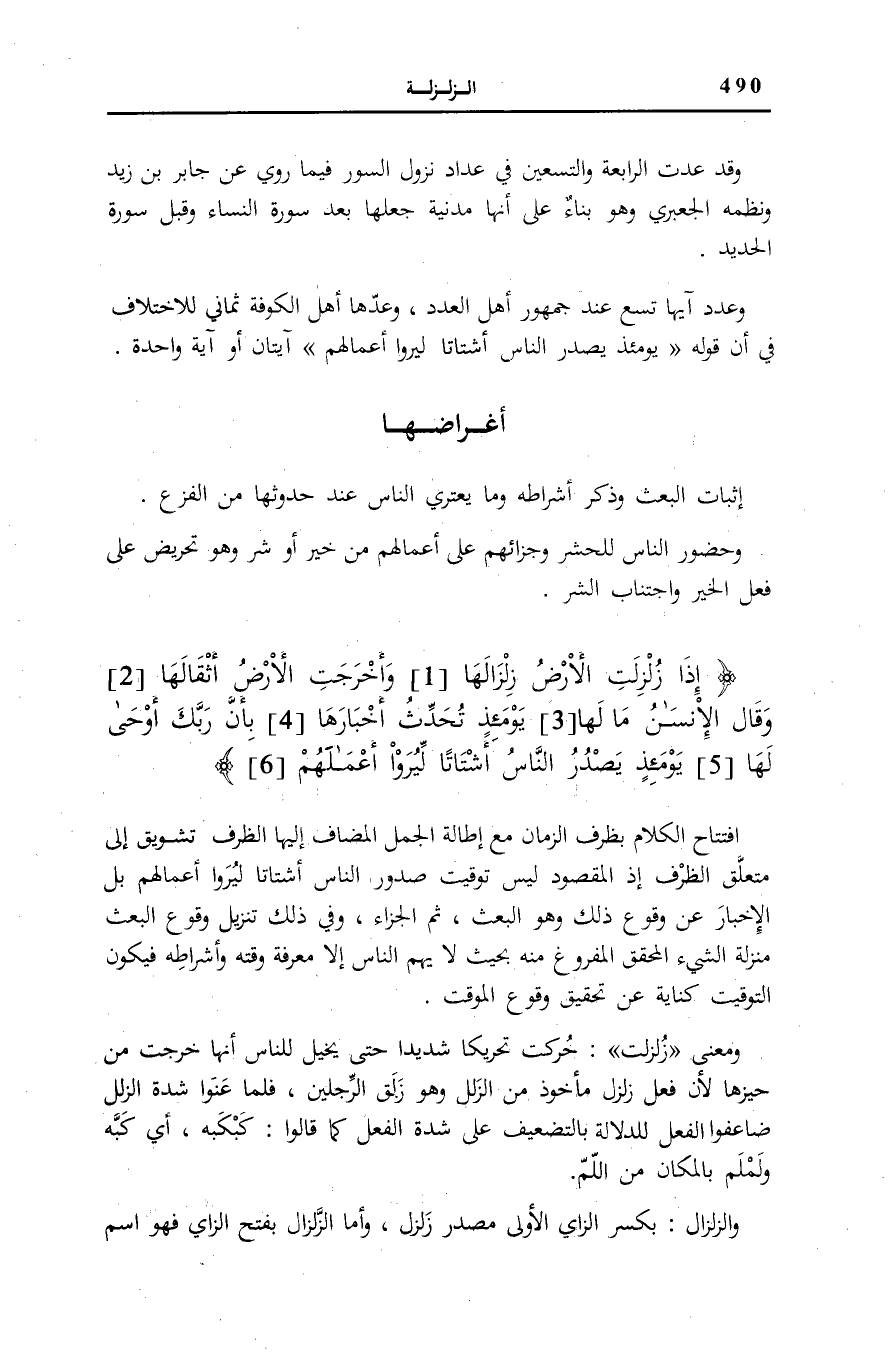 490
الـزلـزلـة
وقد عدت الرابعة والتسعين في عداد نزول السور فيما روي عن جابر بن زيد
ونظمه الجعبري وهو بناءٌ على أنها مدنية جعلها بعد سورة النساء وقبل سورة
الحديد .
وعدد آيها تسع عند جمهور أهل العدد ، وعدّها أهل الكوفة ثماني للاختلاف
في أن قوله « يومئذ يصدر الناس أشتاتا ليروا أعمالهم » آيتان أو آية واحدة .
أغـراضـهـا
إثبات البعث وذكر أشراطه وما يعتري الناس عند حدوثها من الفزع .
وحضور الناس للحشر وجزائهم على أعمالهم من خير أو شر وهو تحريض على
فعل الخير واجتناب الشر .
﴿ إِذَا زُلْزِلَتِ الْأَرْضُ زِلْزَالَهَا [1] وَأَخْرَجَتِ الْأَرْضُ أَثْقَالَهَا [2]
وَقَالَ الْإِنسَٰنُ مَا لَهَا[3] يَوْمَئِذٍ تُحَدِّثُ أَخْبَارَهَا [4] بِأَنَّ رَبَّكَ أَوْحَىٰ
لَهَا [5] يَوْمَئِذٍ يَصْدُرُ النَّاسُ أَشْتَاتًا لِّيُرَوْاْ أَعْمَٰلَهُمْ [6] ﴾
افتتاح الكلام بظرف الزمان مع إطالة الجمل المضاف إليها الظرف تشـويق إلى
متعلَّق الظرْف إذ المقصود ليس توقيت صدور الناس أشتاتا ليُرَوا أعمالهم بل
الإخبارَ عن وقوع ذلك وهو البعث ، ثم الجزاء ، وفي ذلك تنزيل وقوع البعث
منزلة الشيء المحقق المفروغ منه بحيث لا يهم الناس إلا معرفة وقته وأشراطِه فيكون
التوقيت كناية عن تحقيق وقوع الموقت .
ومعنى «زُلزلت» : حُركت تحريكا شديدا حتى يخيل للناس أنها خرجت من
حيزها لأن فعل زلزل مأخوذ من الزَلل وهو زَلَق الرِّجلين ، فلما عَنَوا شدة الزلل
ضاعفوا الفعل للدلالة بالتضعيف على شدة الفعل كما قالوا : كَبْكَبه ، أي كَبَّه
ولَمْلَم بالمكان من اللّمّ.
والزلزال : بكسر الزاي الأولى مصدر زَلزل ، وأما الزَّلزال بفتح الزاي فهو اسم